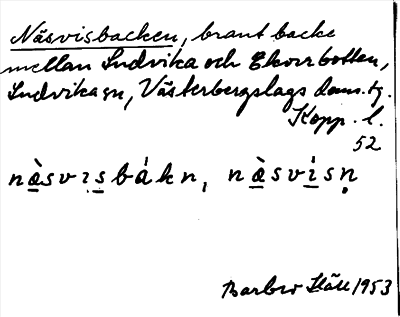 Näsvisbacken, brant backe
mellan Ludvika och Ekorrbotten,
Ludvika sn, Västerbergslags doms.tg.
Kopp. l.
52
nàsvısbákn, nàsvísṇ
1953